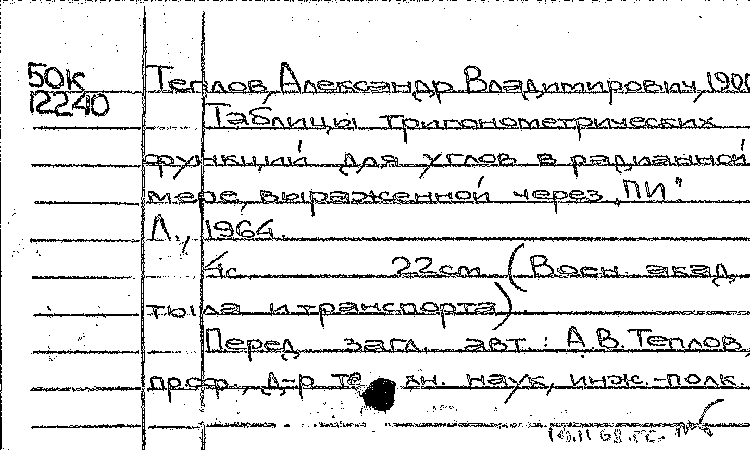 50к
12240
Теплов, Александр Владимирович, 190
Таблицы тригонометрических
функций для углов в радианной
мере, выраженной через „ПИ".
Л., 1964.
4с. 22см. (Воен. акад.
тыла и транспорта).
Перед загл. авт.: А.В. Теплов,
проф., д-р наук, инж.-полк.